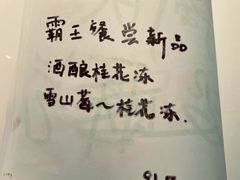 霸王餐尝新品
酒酿桂花冻
雪山莓~桂花冻.